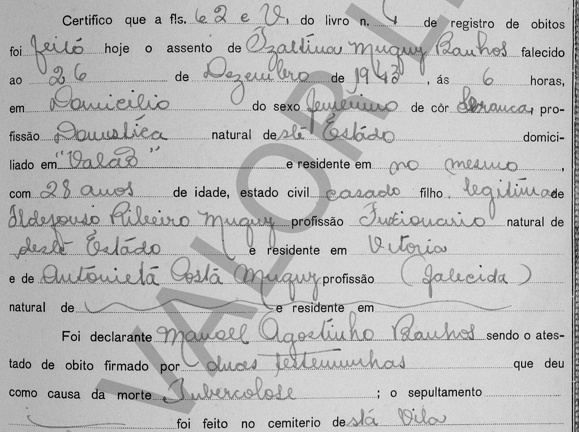 Certifico que a fls. 62 e V. do livro n. 4 de registro de obitos
foi feito hoje o assento de Izaltina Muquy Banhos falecido
ao 26 de Dezembro de 1943, ás 6 horas,
em Domicilio do sexo femenino de côr branca, pro-
fissão Domestica natural deste Estádo domici-
liado em "Valão" e residente em no mesmo,
com 28 anos de idade, estado civil casado filho legitima de
Ildefonso Ribeiro Muquy profissão Funcionario natural de
deste Estádo e residente em Vitoria
e de Antonietá Costá Muquy profissão (falecida)
natural de e residente em
Foi declarante Manoel Agostinho Banhos sendo o ates-
tado de obito firmado por duas testemunhas que deu
como causa da morte Tubercolose ; o sepultamento
foi feito no cemiterio destá Vila
VALOR